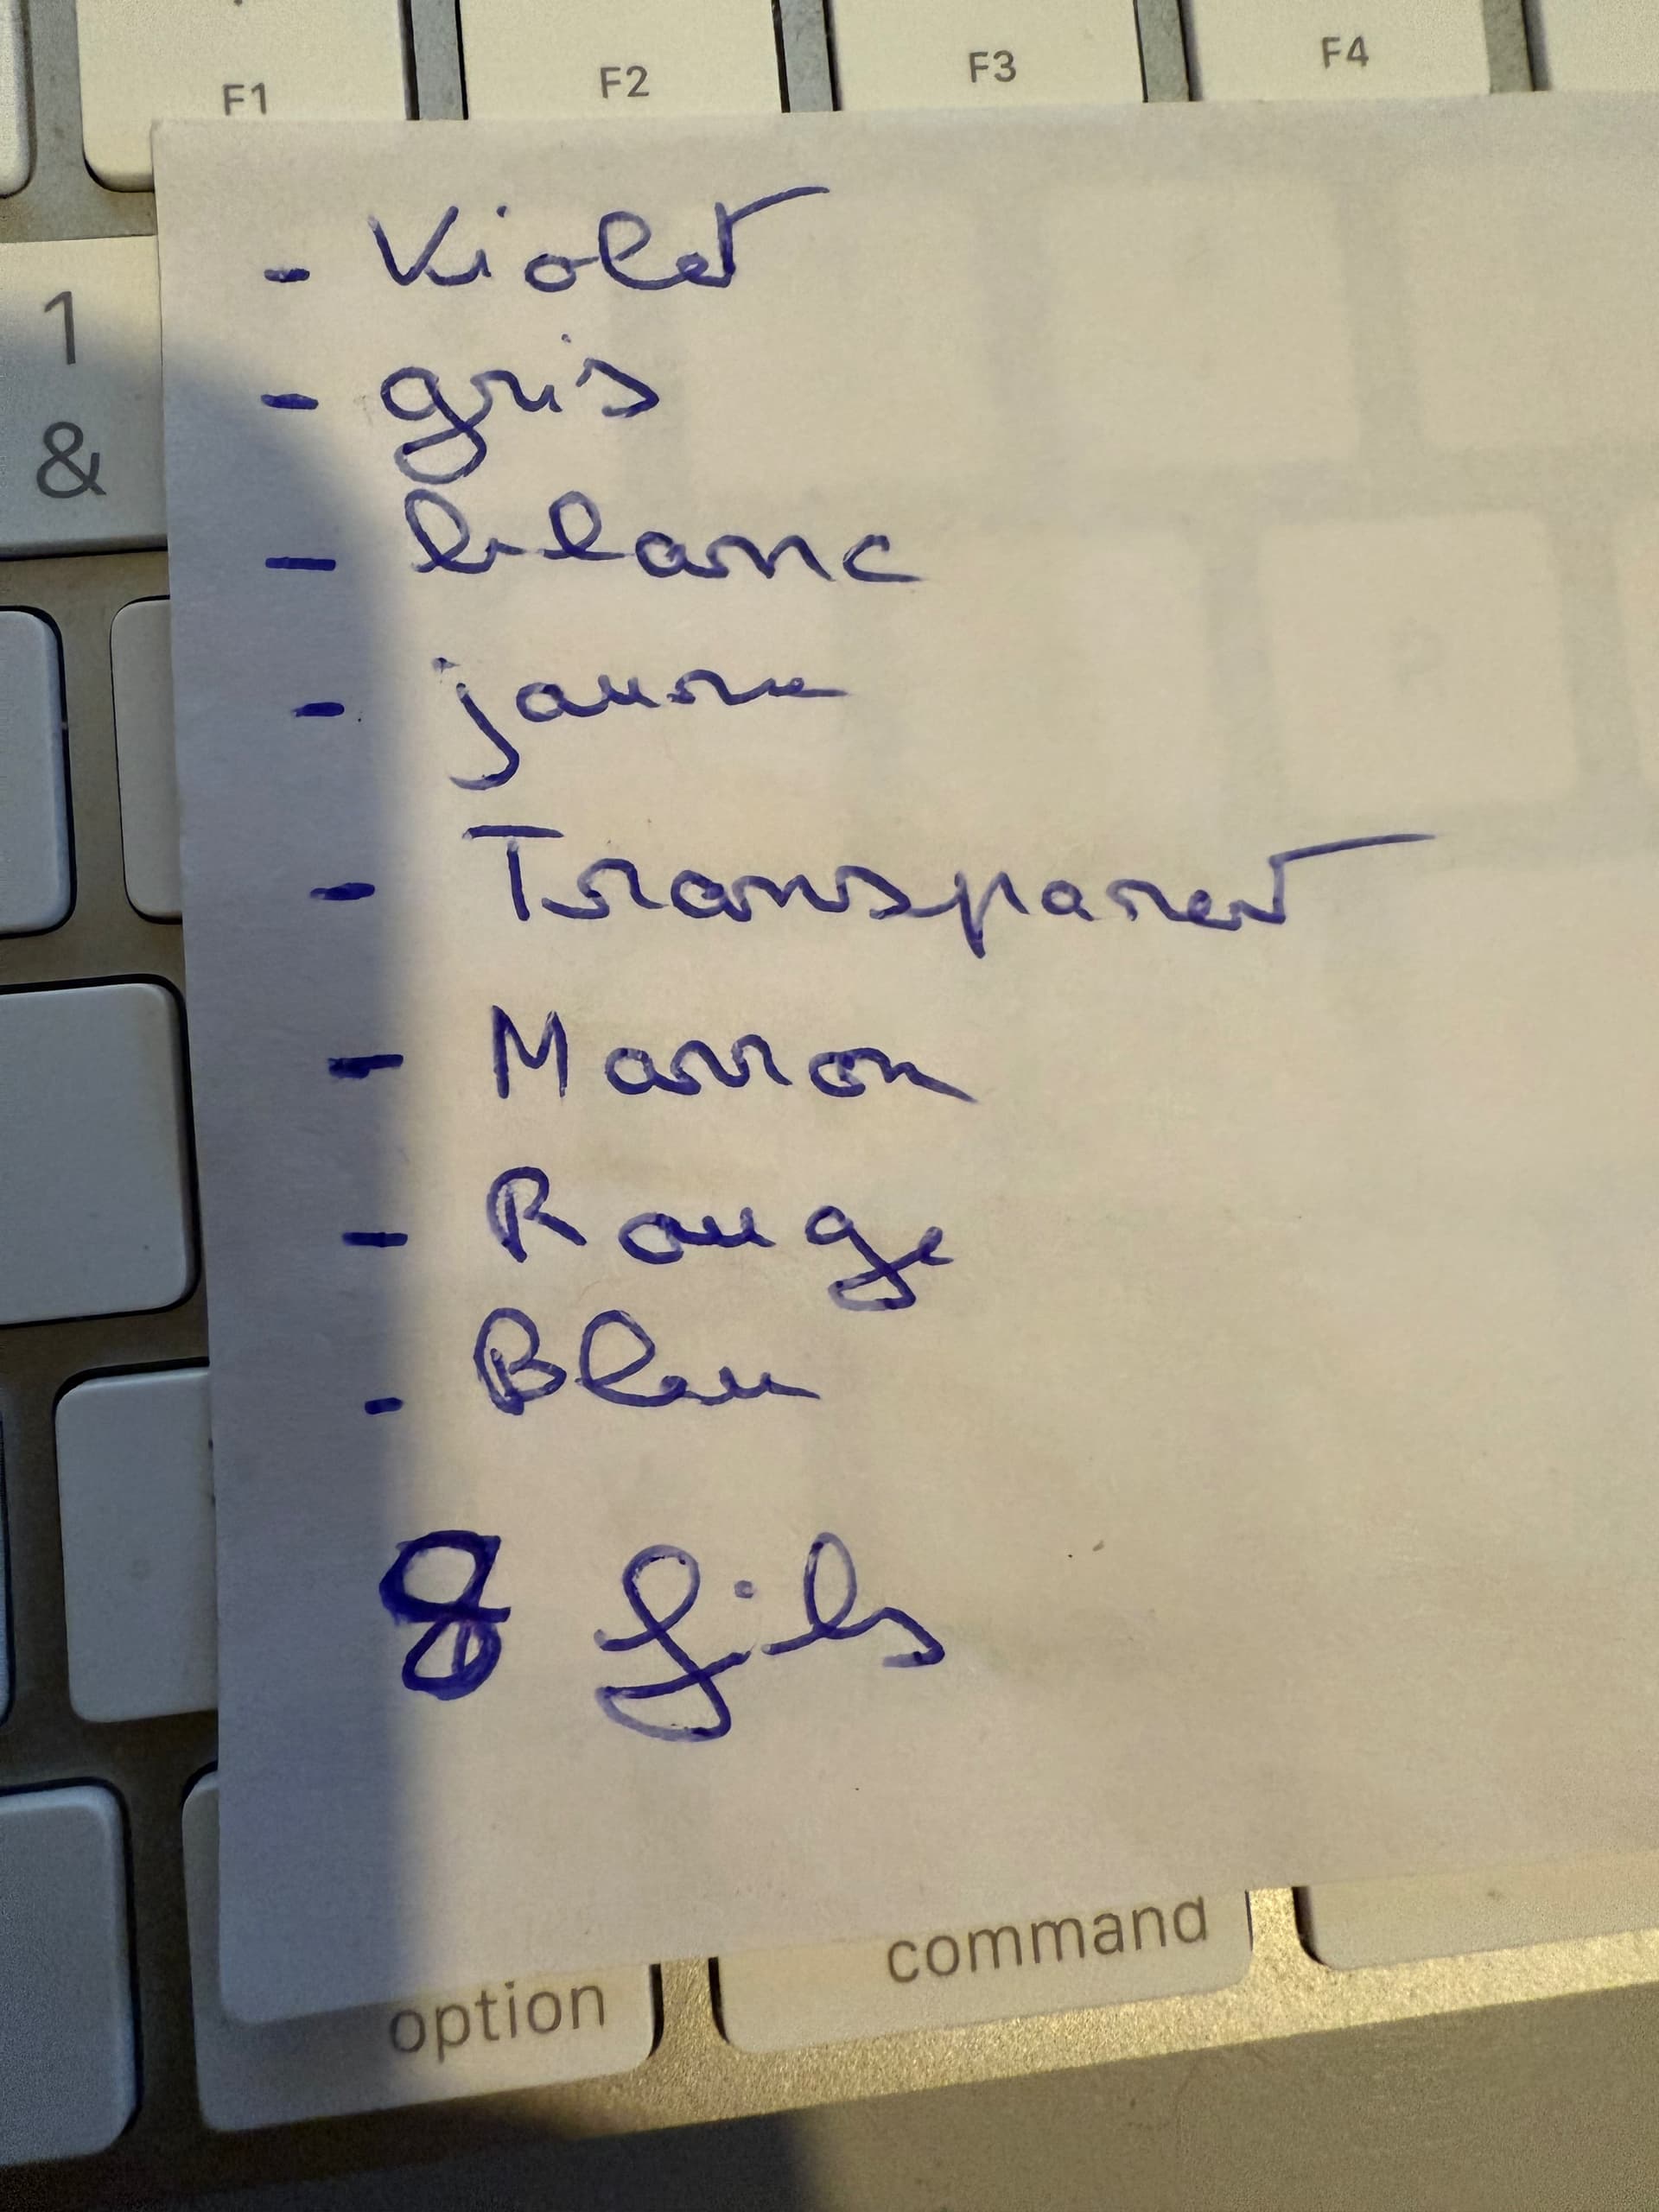 F1 F2 F3 F4
1
&
- Violet
- gris
- blanc
- jaune
- Transparent
- Marron
- Rouge
- Bleu
8 fils
option command